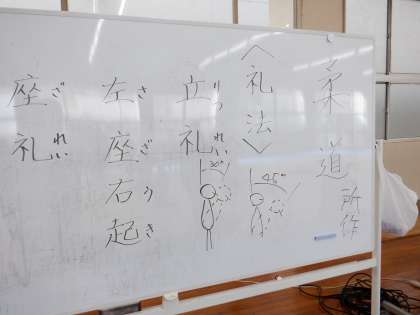 柔道 所作
〈礼法〉
立礼 りつ れい
30°
45°
左座右起 さ ざ う き
座礼 ざ れい